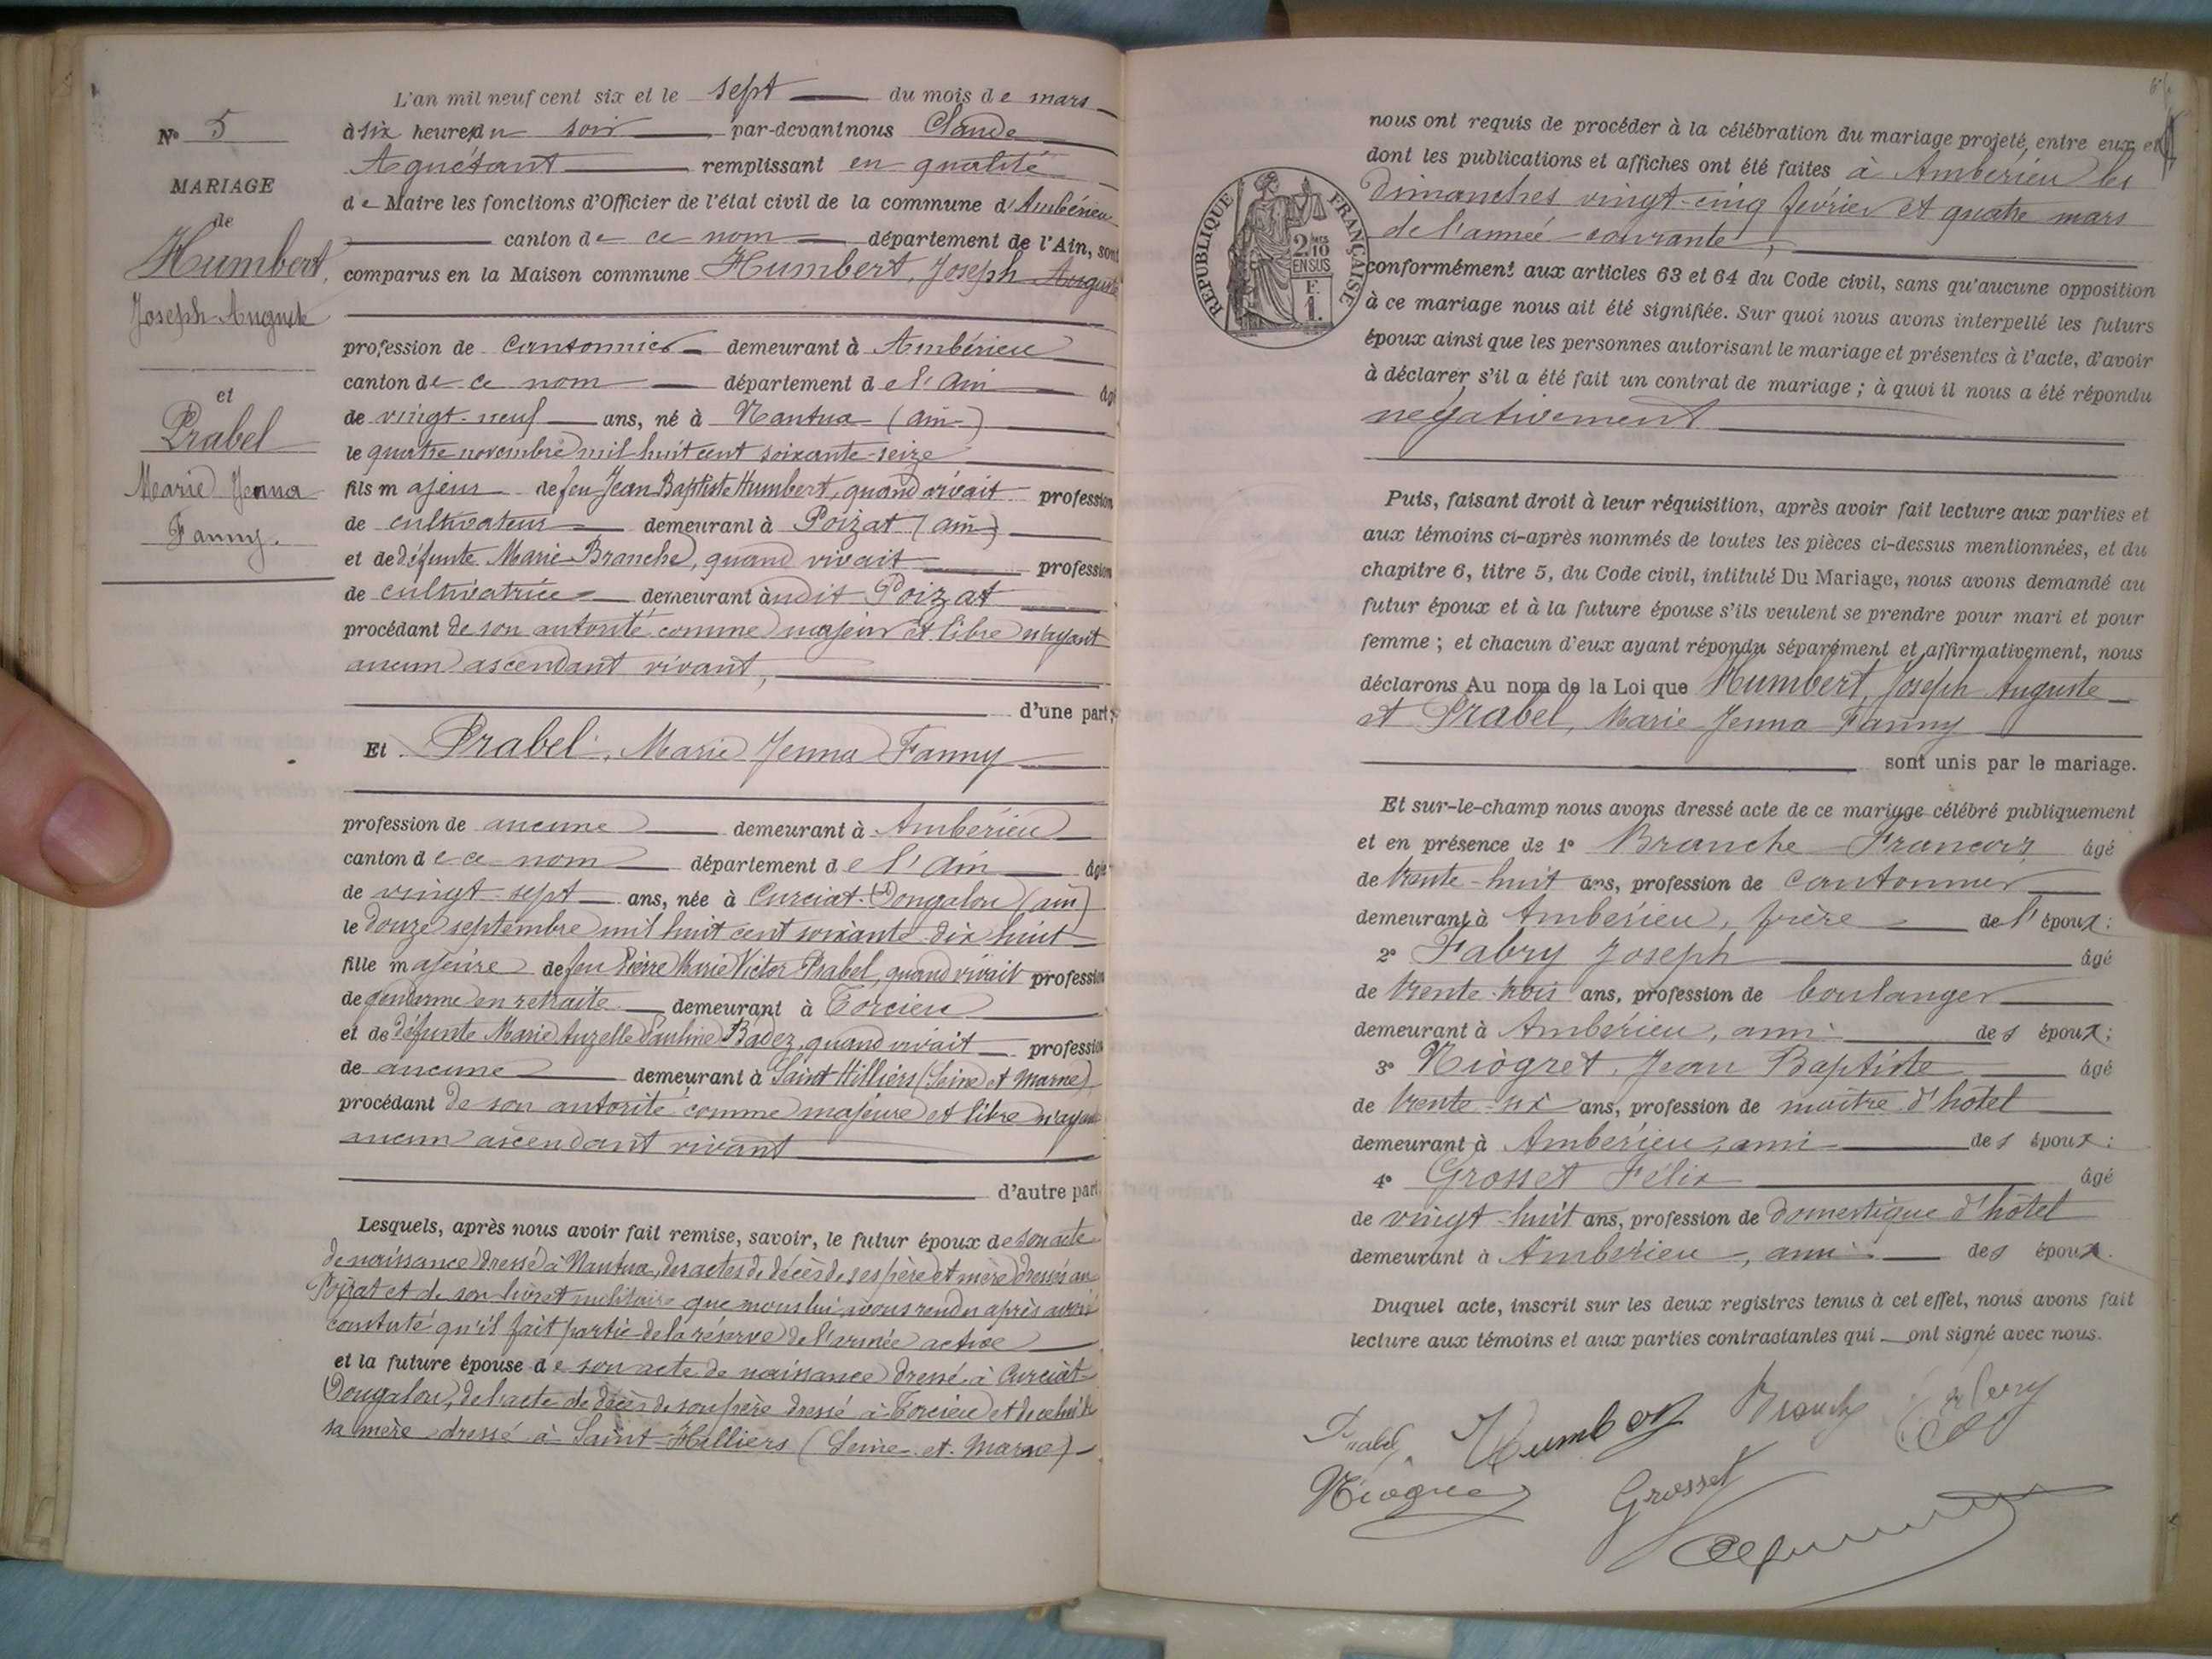 L'an mil neuf cent six et le sept du mois de mars
N° 5
à six heures du soir par-devant nous Claude
Aguétant remplissant en qualité
MARIAGE
de Maire les fonctions d'Officier de l'état civil de la commune d'Ambérieu
de
canton de ce nom département de l'Ain, sont
Humbert,
comparus en la Maison commune Humbert, Joseph Auguste
Joseph Auguste
profession de cantonnier demeurant à Ambérieu
canton de ce nom département de l'Ain âgé
et
Prabel
de vingt-neuf ans, né à Nantua (Ain)
le quatre novembre mil huit cent soixante-seize
Marie Jenna
fils majeur de feu Jean Baptiste Humbert, quand vivait profession
de cultivateur demeurant à Poizat (Ain)
Fanny.
et de défunte Marie Branche, quand vivait profession
de cultivatrice demeurant audit Poizat
procédant de son autorité comme majeur et libre n'ayant
aucun ascendant vivant,
d'une part;
Et Prabel, Marie Jenna Fanny
profession de aucune demeurant à Ambérieu
canton de ce nom département de l'Ain âgée
de vingt-sept ans, née à Curciat-Dongalon (Ain)
le douze septembre mil huit cent soixante dix huit
fille majeure de feu Pierre Marie Victor Prabel, quand vivait profession
de gendarme en retraite demeurant à Torcieu
et de défunte Marie Auzelle Pauline Badez, quand vivait profession
de aucune demeurant à Saint Hilliers (Seine et Marne)
procédant de son autorité comme majeure et libre n'ayant
aucun ascendant vivant
d'autre part
Lesquels, après nous avoir fait remise, savoir, le futur époux de son acte
de naissance dressé à Nantua, des actes de décès de ses père et mère dressés au
Poizat et de son livret militaire que nous lui avons rendu après avoir
constaté qu'il fait partie de la réserve de l'armée active
et la future épouse de son acte de naissance dressé à Curciat-
Dongalon, de l'acte de décès de son père dressé à Torcieu et de celui de
sa mère dressé à Saint-Hilliers (Seine-et-Marne)
nous ont requis de procéder à la célébration du mariage projeté entre eux et
dont les publications et affiches ont été faites à Ambérieu les
dimanches vingt-cinq février et quatre mars
de l'année courante,
RÉPUBLIQUE FRANÇAISE
2/10
EN SUS
F.
1.
conformément aux articles 63 et 64 du Code civil, sans qu'aucune opposition
à ce mariage nous ait été signifiée. Sur quoi nous avons interpellé les futurs
époux ainsi que les personnes autorisant le mariage et présentes à l'acte, d'avoir
à déclarer s'il a été fait un contrat de mariage ; à quoi il nous a été répondu
négativement
Puis, faisant droit à leur réquisition, après avoir fait lecture aux parties et
aux témoins ci-après nommés de toutes les pièces ci-dessus mentionnées, et du
chapitre 6, titre 5, du Code civil, intitulé Du Mariage, nous avons demandé au
futur époux et à la future épouse s'ils veulent se prendre pour mari et pour
femme ; et chacun d'eux ayant répondu séparément et affirmativement, nous
déclarons Au nom de la Loi que Humbert, Joseph Auguste
et Prabel, Marie Jenna Fanny
sont unis par le mariage.
Et sur-le-champ nous avons dressé acte de ce mariage célébré publiquement
et en présence de 1° Branche François âgé
de trente-huit ans, profession de cantonnier
demeurant à Ambérieu, frère de l'époux ;
2° Fabry Joseph âgé
de trente-trois ans, profession de boulanger
demeurant à Ambérieu, ami des époux ;
3° Niogret, Jean Baptiste âgé
de trente-six ans, profession de maître d'hôtel
demeurant à Ambérieu, ami des époux ;
4° Grosset Félix âgé
de vingt-huit ans, profession de domestique d'hôtel
demeurant à Ambérieu, ami des époux.
Duquel acte, inscrit sur les deux registres tenus à cet effet, nous avons fait
lecture aux témoins et aux parties contractantes qui ont signé avec nous.
Prabel Humbert Branche
Niogret Grosset